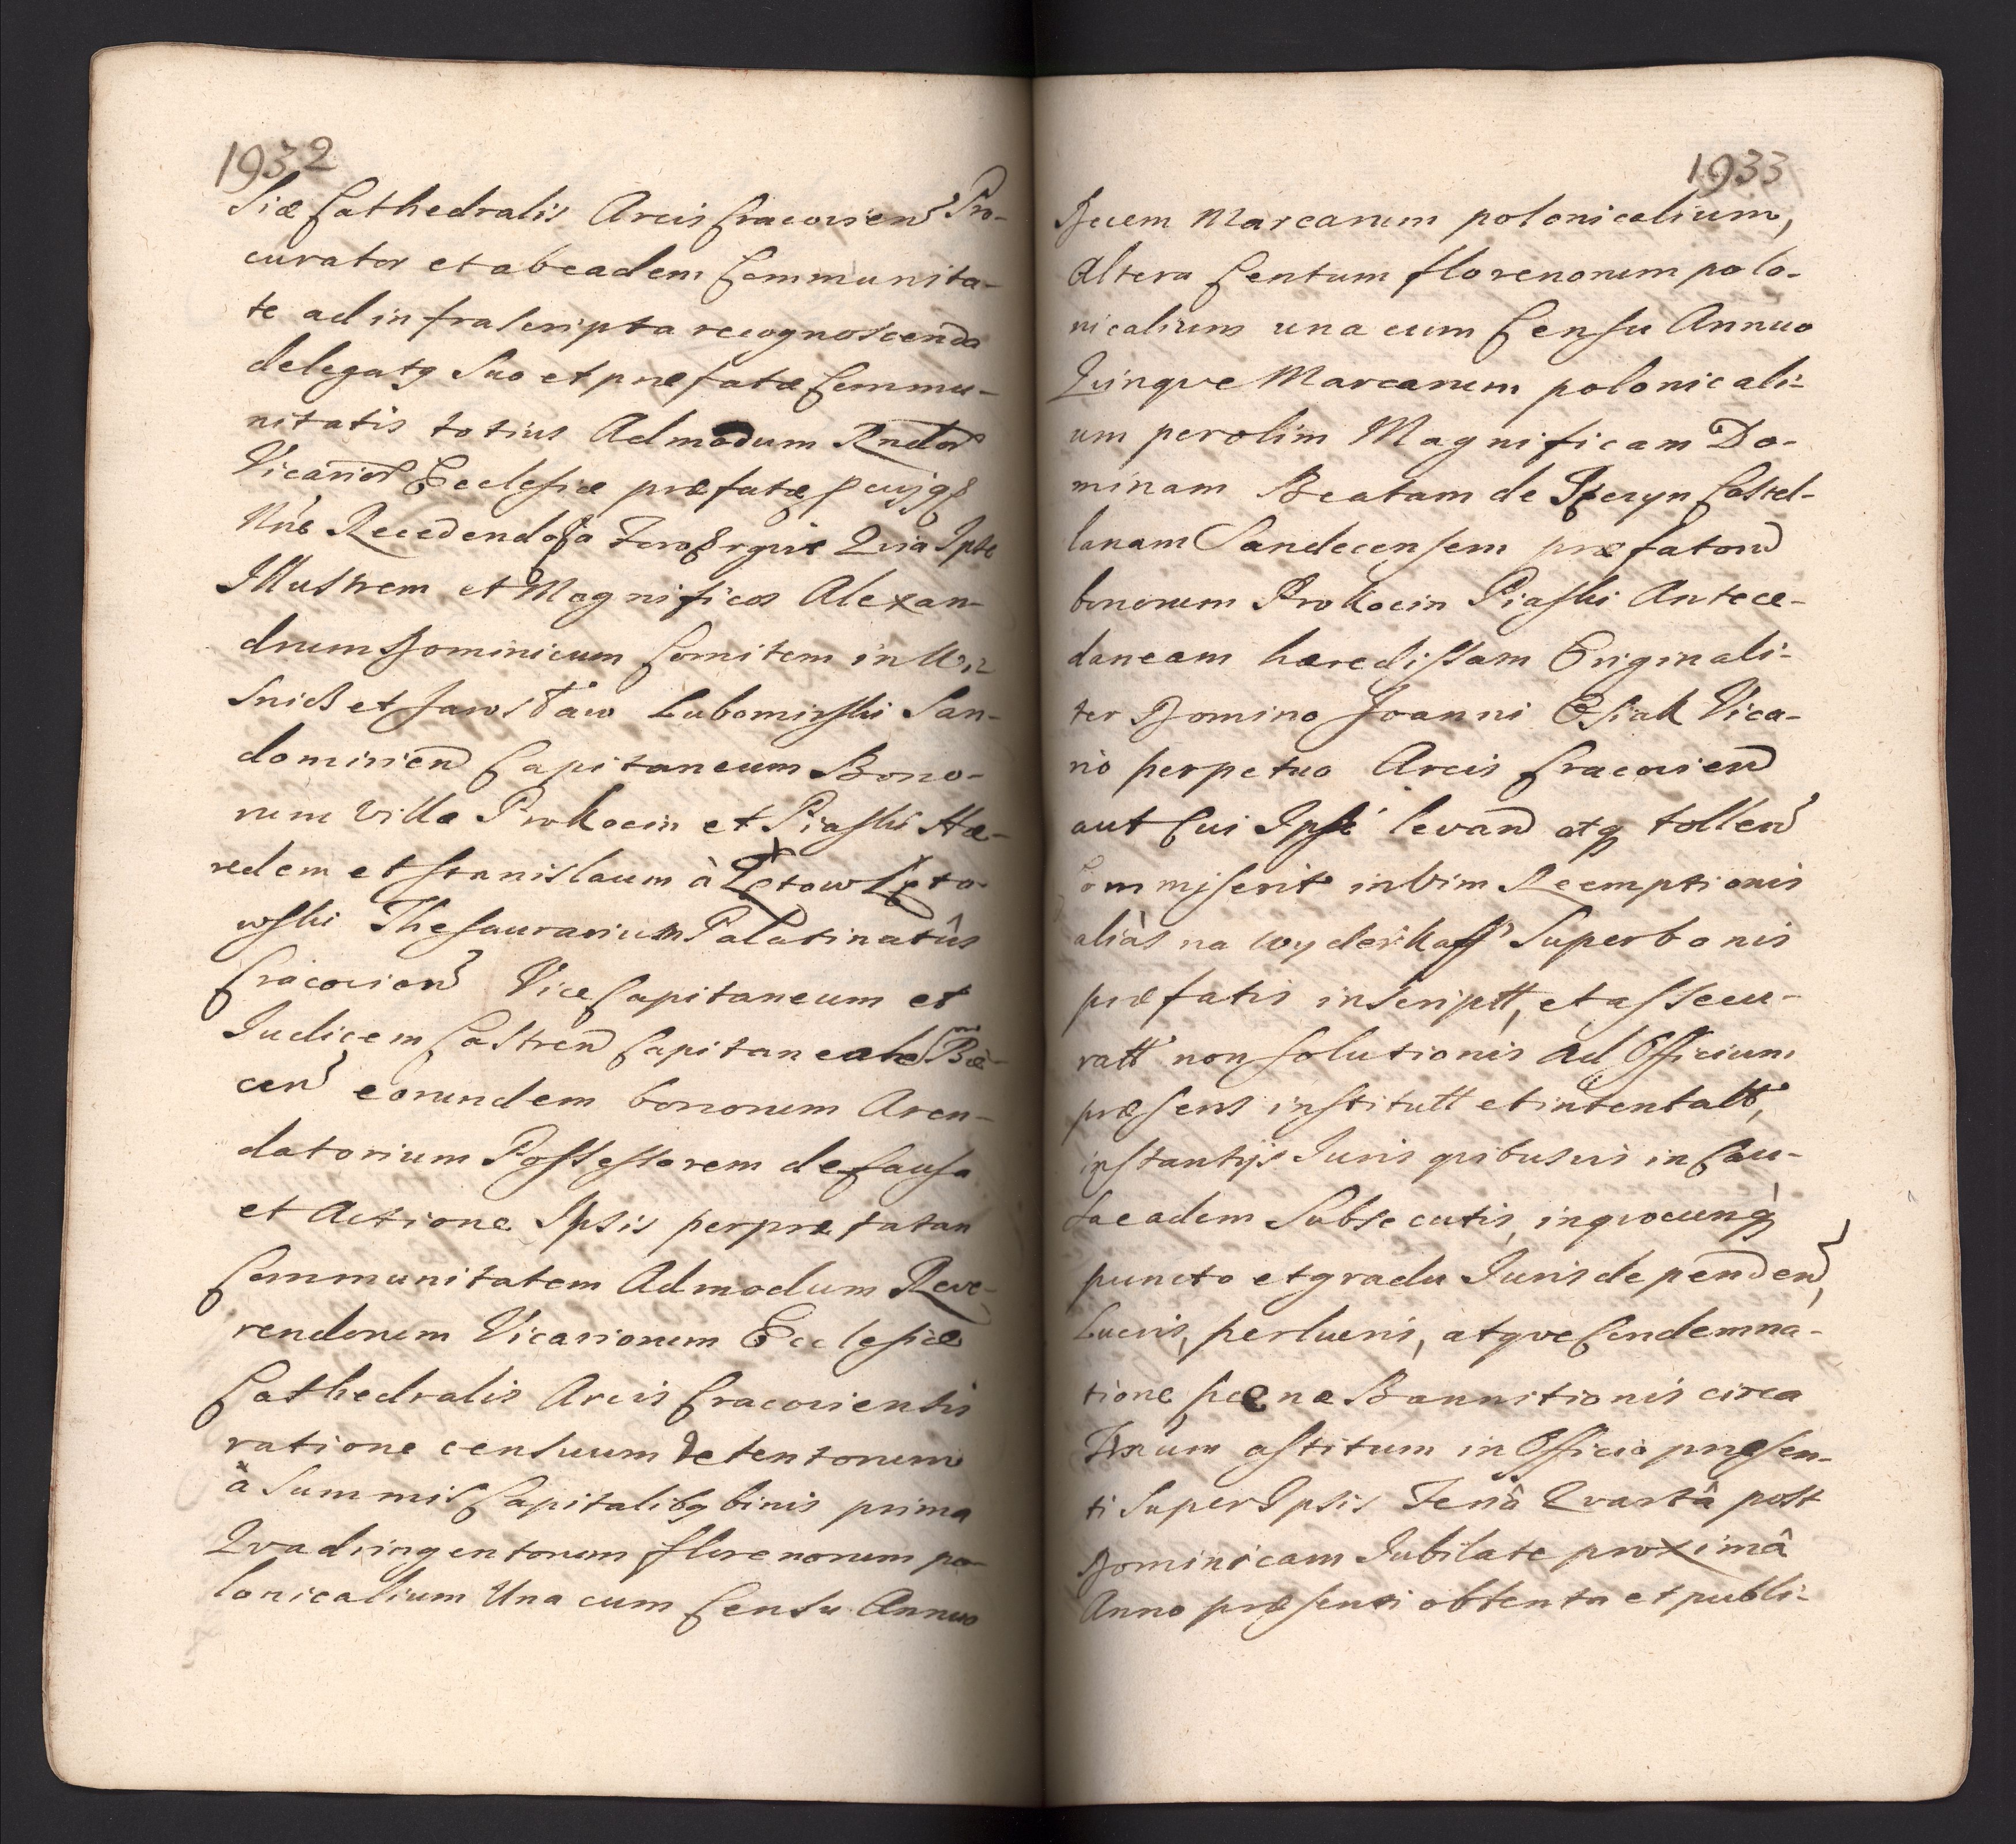 1932
siæ Cathedralis Arcis Cracovien Pro-
curator et ab eadem Communita-
te ad infrascripta recognoscenda
delegatg Suo et præfatæ Commu-
nitatis totius Admodum Rndor
Vicarior Ecclesiæ præfatæ
Recedendo Quia Ipse
Illustrem et Magnificos Alexan-
drum Dominicum Comitem in Wi
snicz et Jarosław Lubomirski San-
domirien Capitaneum Bono-
rum Villæ Prokocin et Piaski Hæ-
redem et Stanislaum à Łętow Łęto-
wski Thesaurarium Palatinatûs
Cracovien Vice Capitaneum et
Iudicem Castren Capitanealem Bie-
cen eorundem bonorum Aren-
datorium Possessorem de Causa
et Actione Ipsis per præfatam
Communitatem Admodum Reve-
rendorum Vicariorum Ecclesiæ
Cathedralis Arcis Cracoviensis
ratione censuum detentorum
à Summis Capitalibg binis prima
Quadringentorum florenorum po-
lonicalium Una cum Censu Annuo
1933
Decem Marcarum polonicalium,
Altera Centum florenorum polo-
nicalium una cum Censu Annuo
Quinque Marcarum polonicali-
um per olim Magnificam Do-
minam Beatam de Castel-
lanam Sandecensem præfator
bonorum Prokocin Piaski Antece-
daneam hæredissam Originali-
ter Domino Joanni Osiak Vica-
rio perpetuo Arcis Cracovien
aut Cui Ipse levan atq tollen
Commiserit in Vim Reemptionis
aliàs na wyderkaff Super bonis
præfatis inscriptt, et assecu-
ratt non solutionis ad Officium
præsens institutt et intentatt,
instantijs Iuris quibusvis in Cau-
sa eadem Subsecutis, in quocunq
puncto et gradu Iuris dependen,
Lucris, perlucris, atque Condemna-
tione pœnæ Bannitionis circa
Trnum astitum in Officio præsen-
ti Super Ipsis Feriâ Quartâ post
Dominicam Jubilate proximâ
Anno præsenti obtenta et publi-